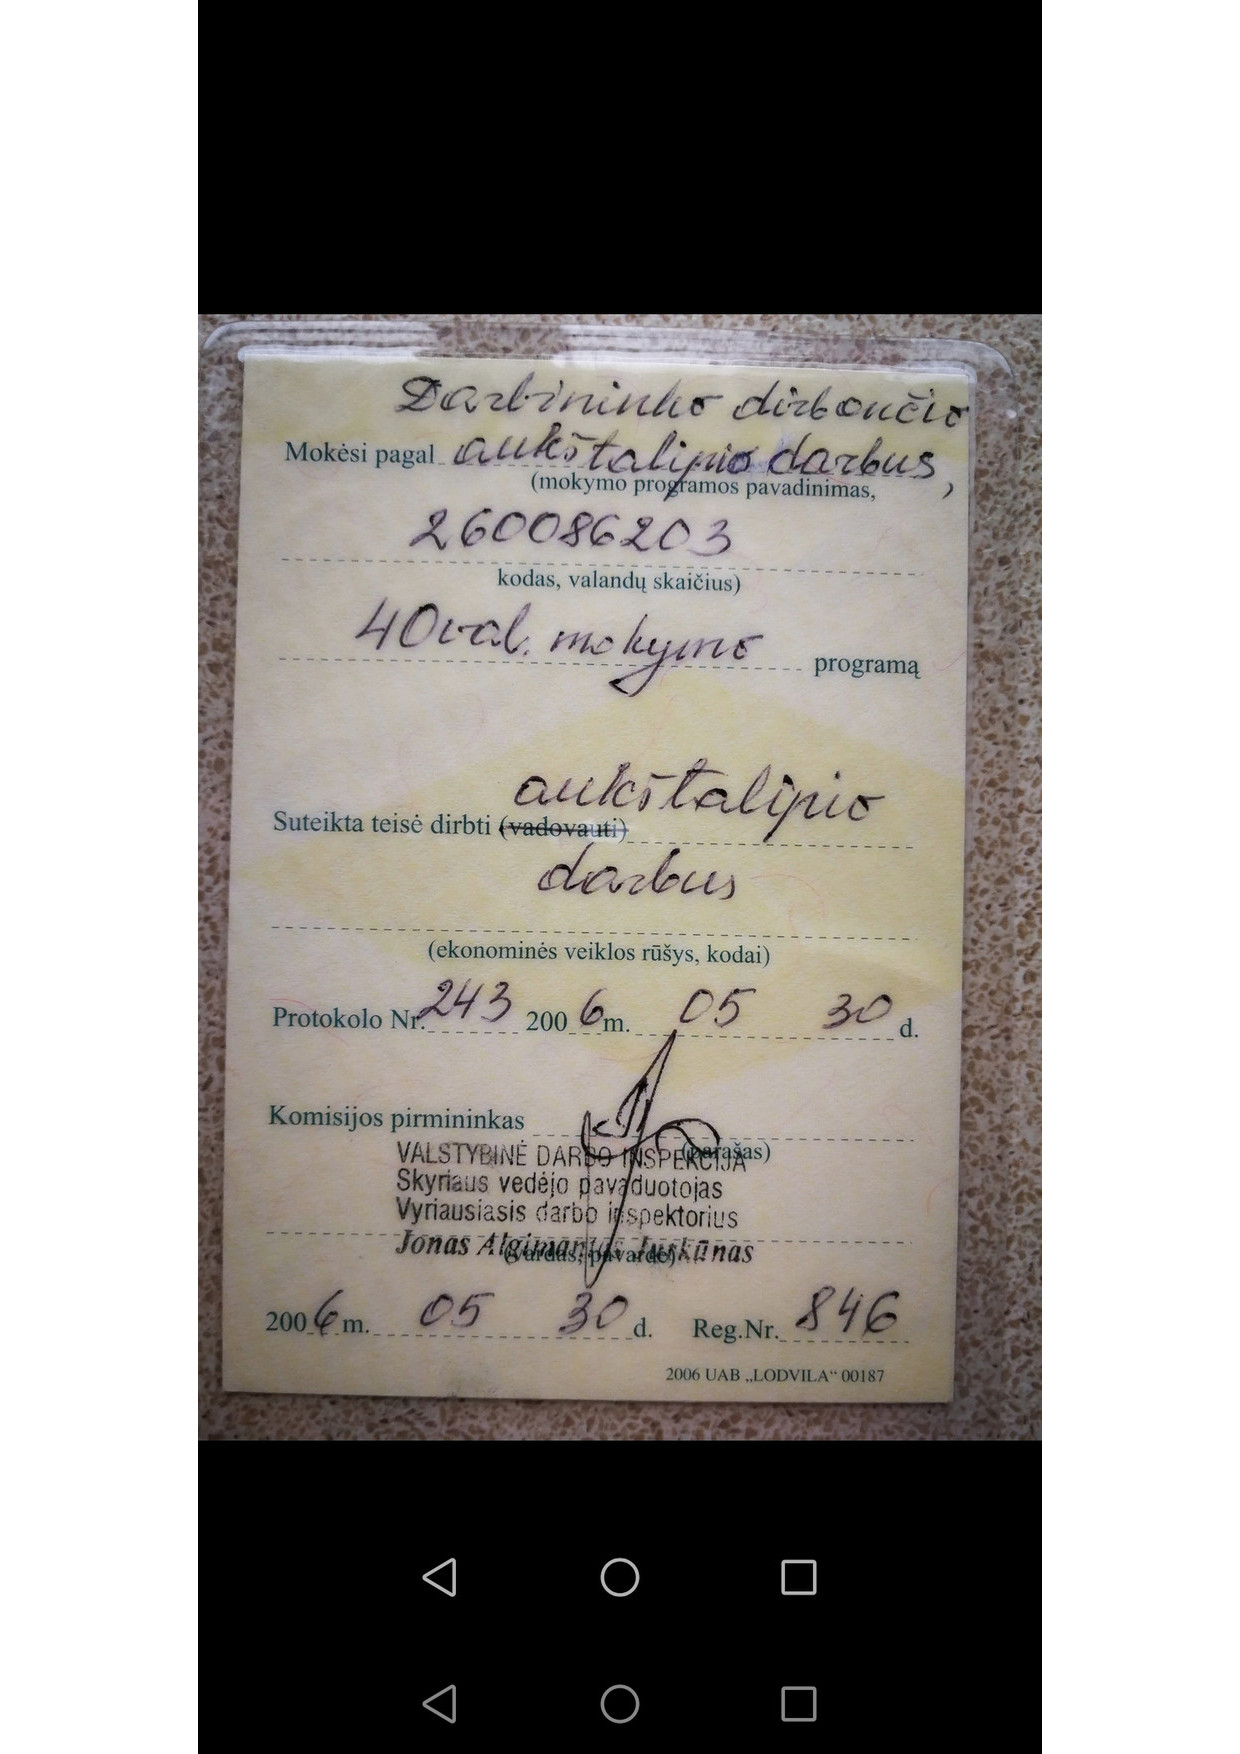 Darbininko dirbančio
Mokėsi pagal aukštalipio darbus,
(mokymo programos pavadinimas,
260086203
kodas, valandų skaičius)
40 val. mokymo programą
aukštalipio
Suteikta teisė dirbti (vadovauti)
darbus
(ekonominės veiklos rūšys, kodai)
Protokolo Nr. 243 2006 m. 05 30 d.
Komisijos pirmininkas
(parašas)
VALSTYBINĖ DARBO INSPEKCIJA
Skyriaus vedėjo pavaduotojas
Vyriausiasis darbo inspektorius
Jonas Algimantas Juškūnas
(vardas, pavardė)
2006 m. 05 30 d. Reg.Nr. 846
2006 UAB „LODVILA“ 00187